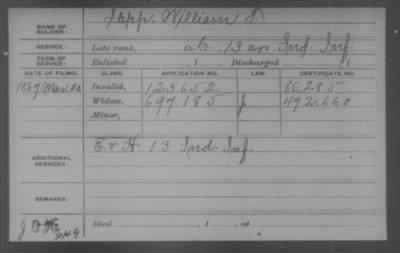 NAME OF SOLDIER: Stepp, William S.
SERVICE: Late rank, Co. C, 13 Reg't Ind. Inf.
TERM OF SERVICE: Enlisted , 1 Discharged , 1
DATE OF FILING. CLASS. APPLICATION NO. LAW. CERTIFICATE NO.
1867 Mar Invalid, 123652 86.285
Widow, 697.185 492.660
Minor,
ADDITIONAL SERVICES: E & H 13 Ind. Inf.
REMARKS:
Died , 1 , at